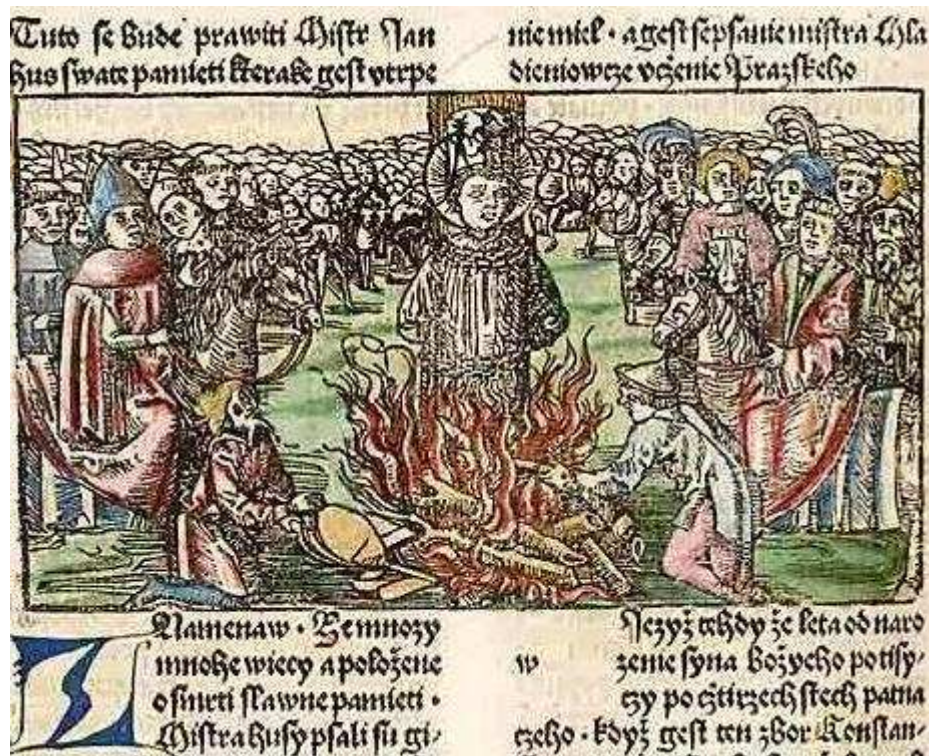 Tuto se bude prawiti Mistr Jan
hus swate pamieti kterake gest vtrpe
nie miel · a gest sepsanie mistra Mla
dieniowcze vczenie Prazskeho
Znamenaw · Ze mnozy
mnohe wiecy a položene
o smrti slawne pamieti ·
Mistra husy psali su gi-
Jezyž tehdy že leta od naro
w zenie syna Božyeho potisy-
czy po cztirzech stech patna
czeho · když gest ten zbor Konstan-